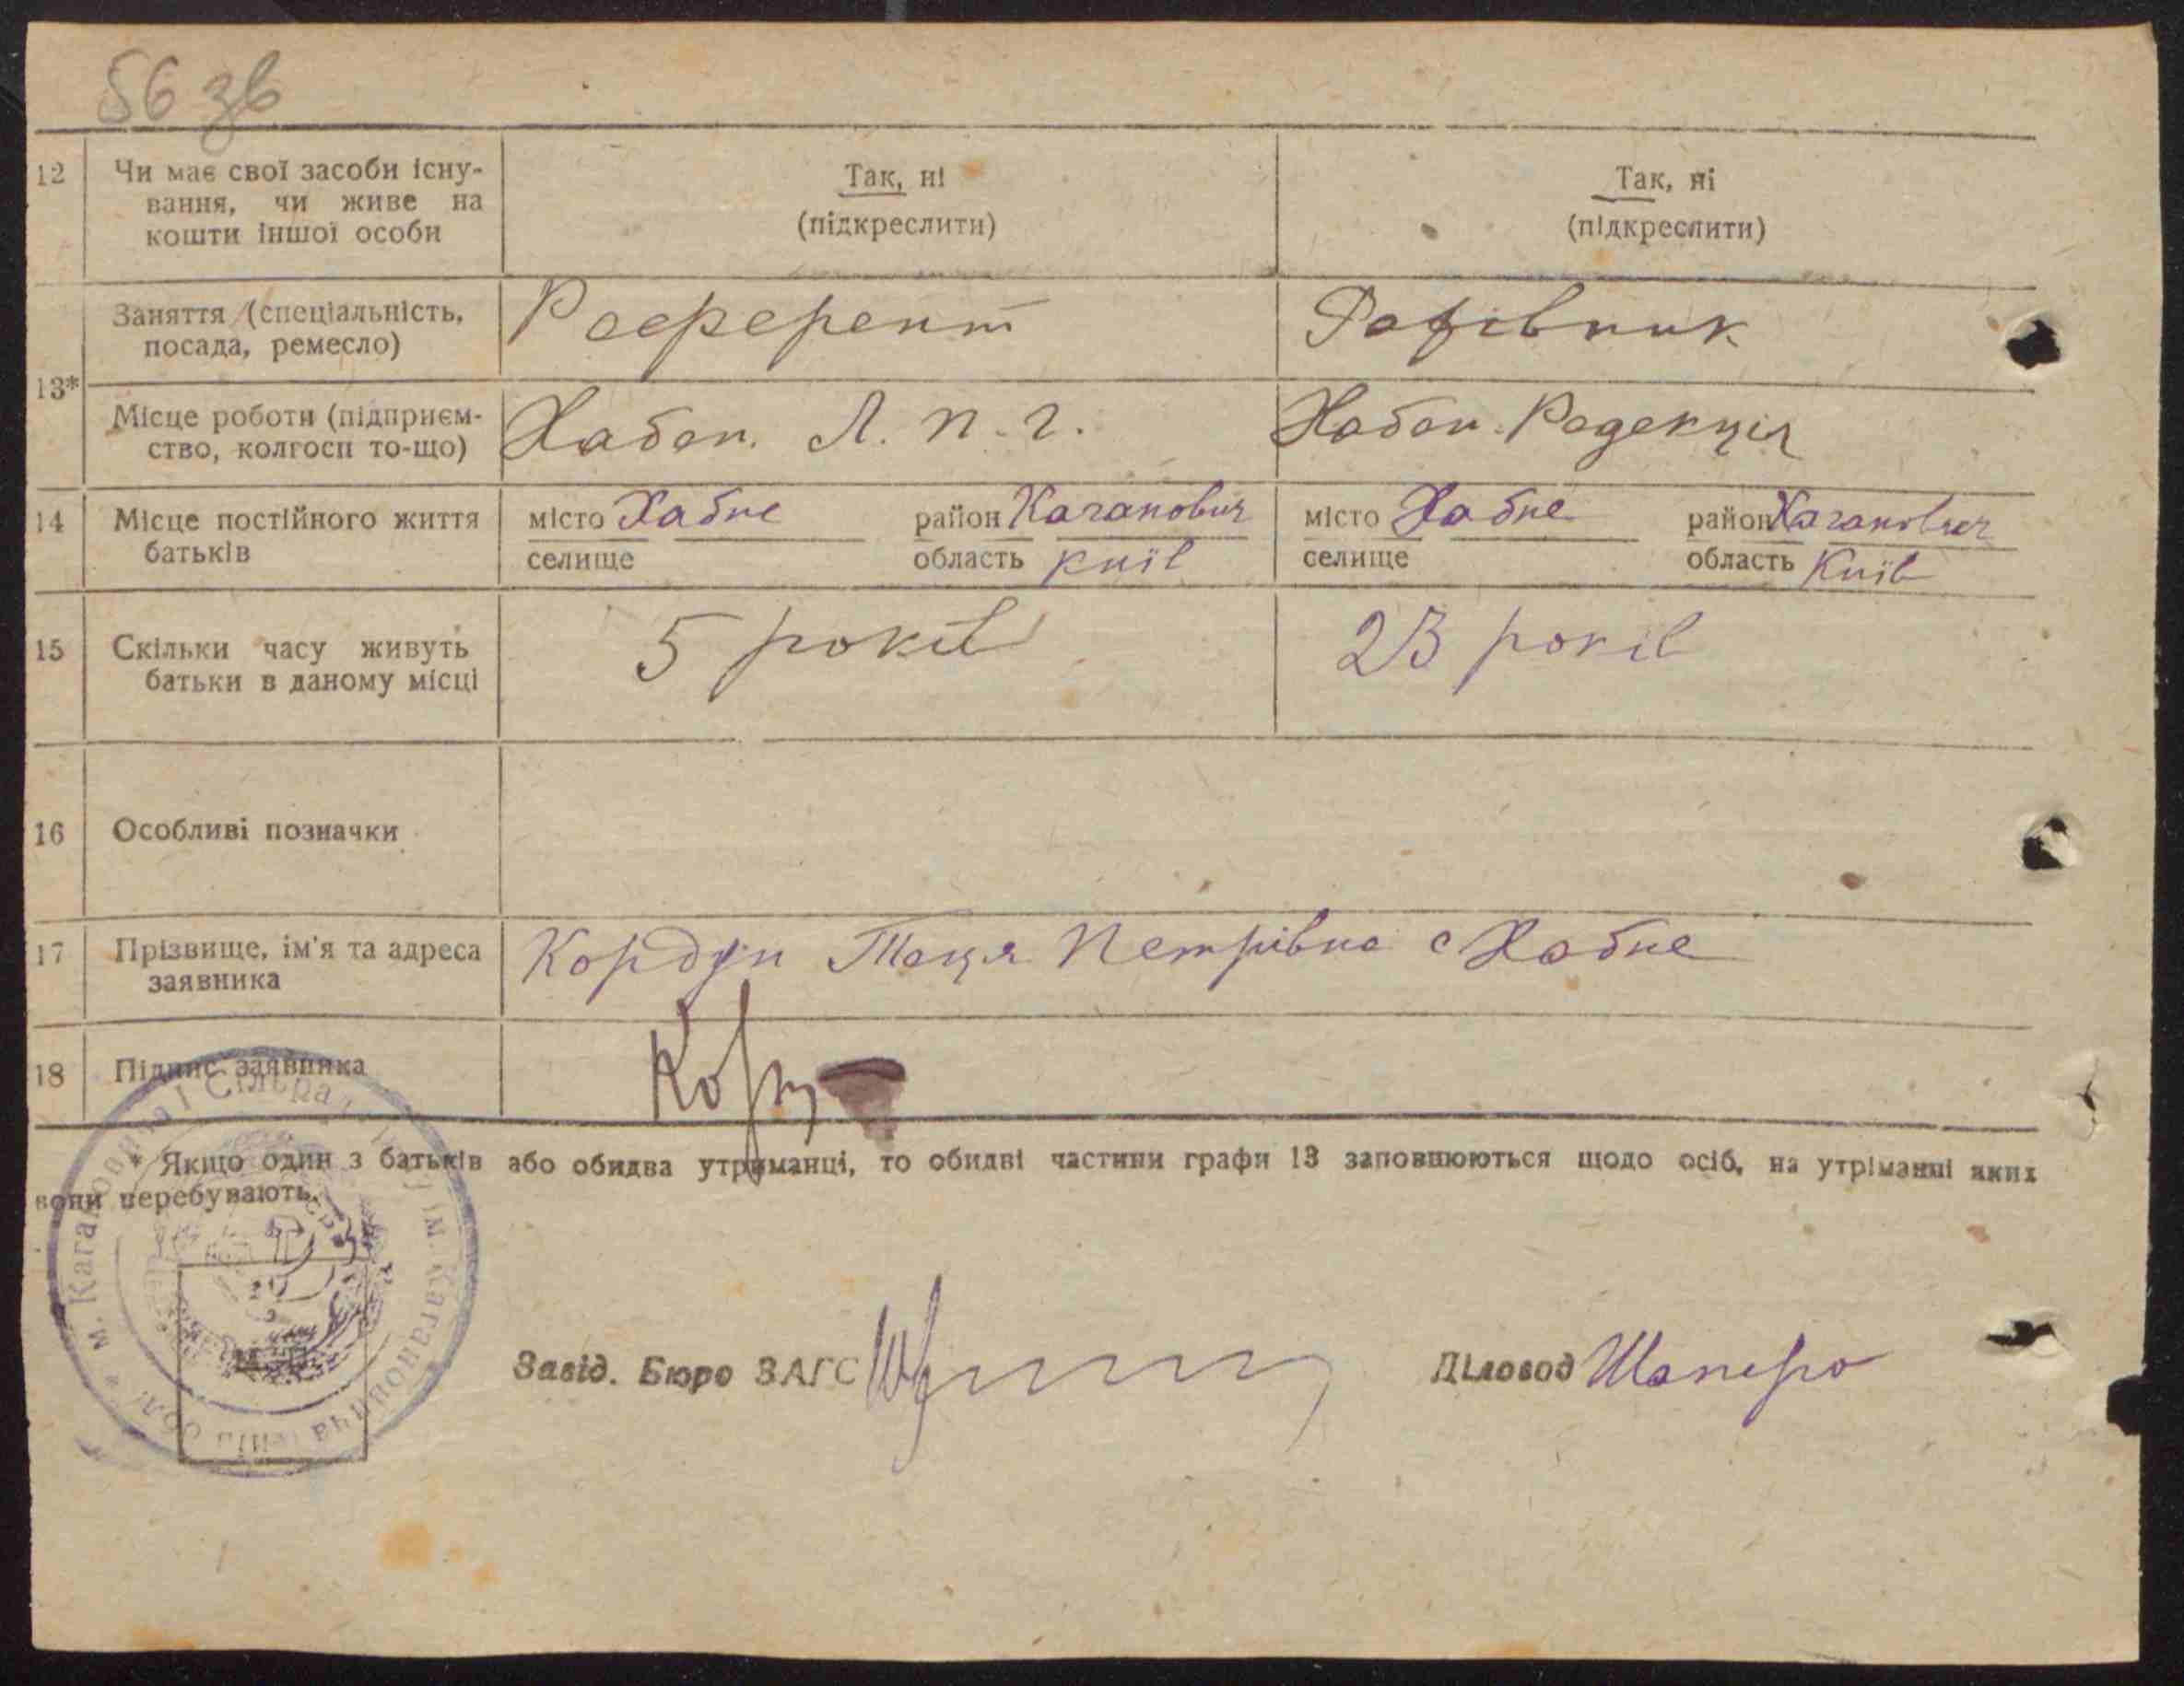 56 зв
12 Чи має свої засоби існу- Так, ні Так, ні
вання, чи живе на (підкреслити) (підкреслити)
кошти іншої особи
Заняття (спеціальність, Референт
посада, ремесло)
13*
Місце роботи (підприєм- Хабен. Л. П. Г. Хабен. Редекція
ство, колгосп то-що)
14 Місце постійного життя місто Хабне район Каганович місто Хабне район Каганович
батьків селище область Київ селище область Київ
15 Скільки часу живуть 5 років 23 років
батьки в даному місці
16 Особливі позначки
17 Прізвище, ім'я та адреса Кордун Петрівна с Хабне
заявника
18 Підпис заявника
* Якщо один з батьків або обидва утриманці, то обидві частини графи 13 заповнюються щодо осіб, на утріманні яких
вони перебувають.
Завід. Бюро ЗАГС Діловод Шапиро